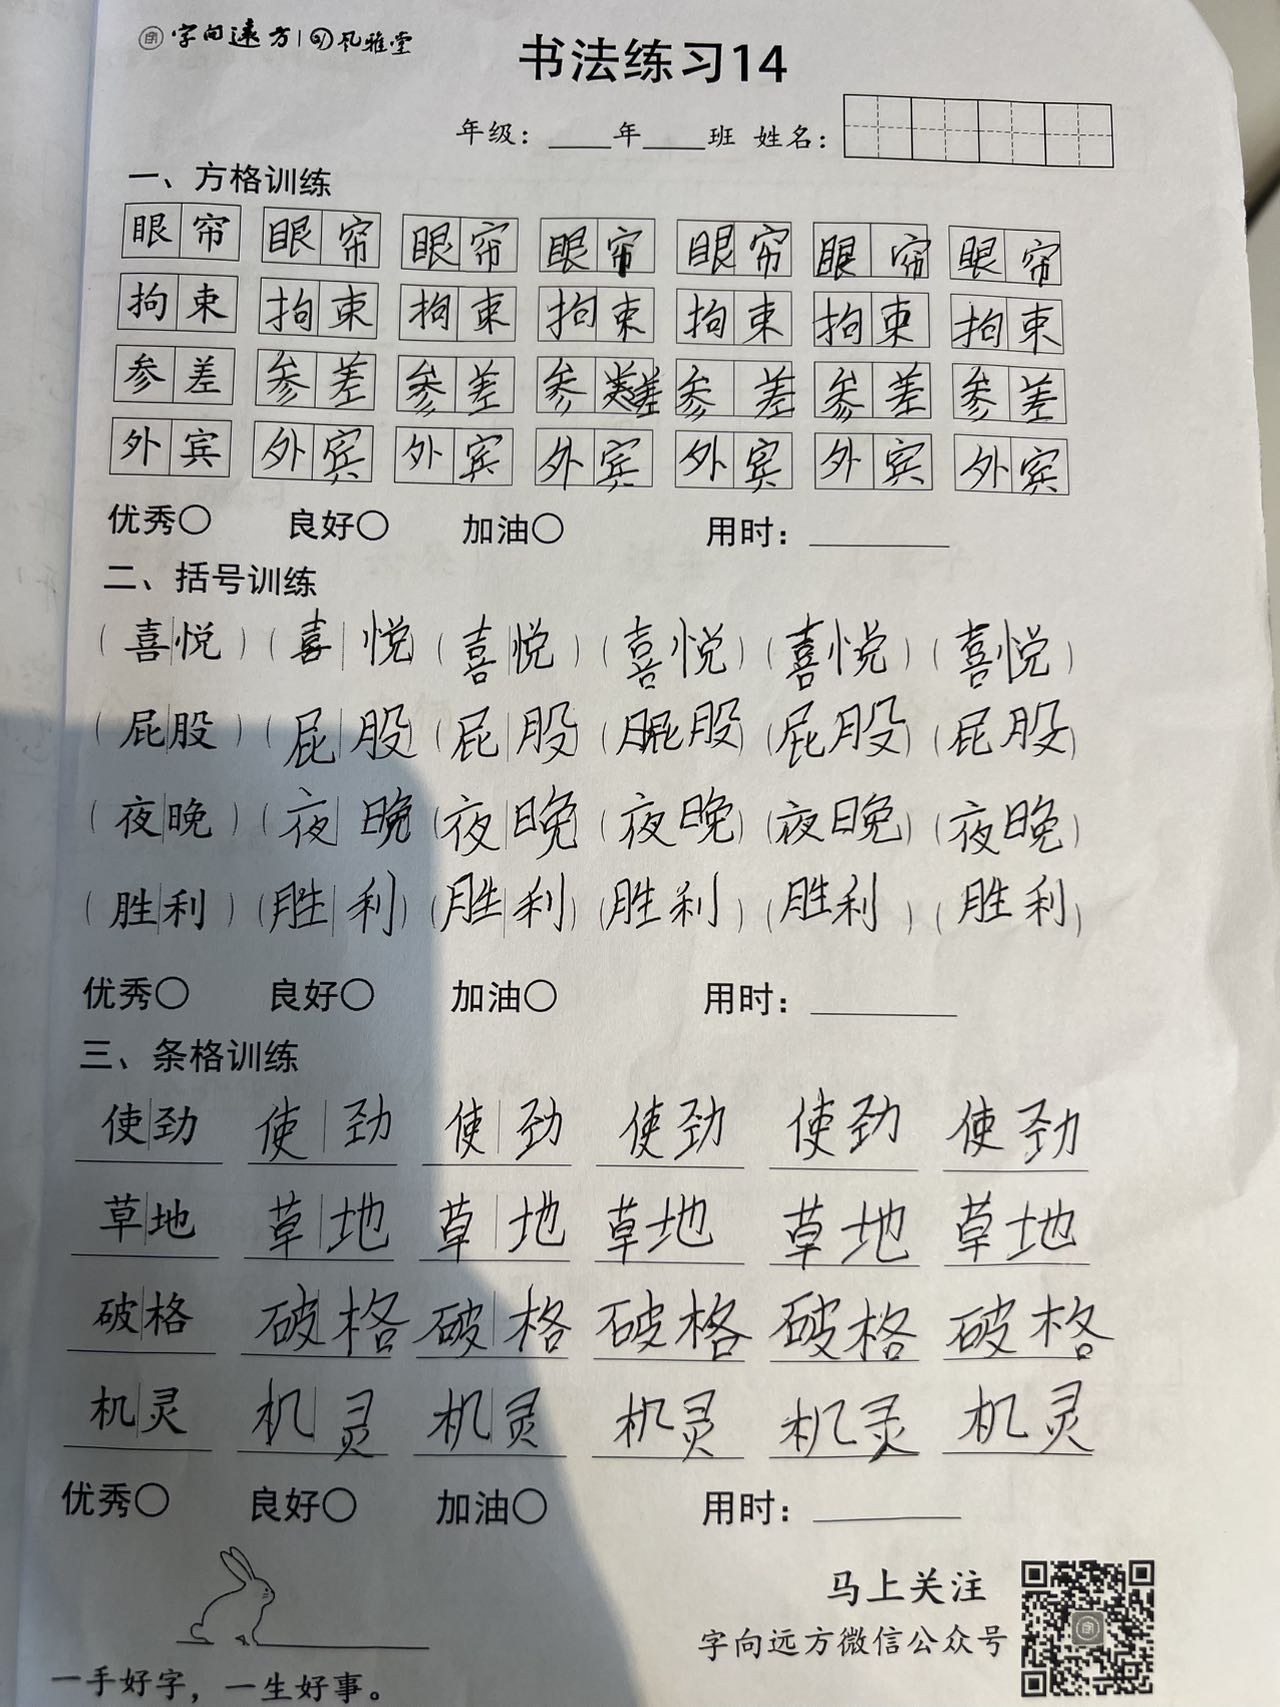 字向远方 风雅堂
书法练习14
年级：____年____班 姓名：
一、方格训练
眼帘 眼帘 眼帘 眼帘 眼帘 眼帘 眼帘
拘束 拘束 拘束 拘束 拘束 拘束 拘束
参差 参差 参差 参差 参差 参差 参差
外宾 外宾 外宾 外宾 外宾 外宾 外宾
优秀○ 良好○ 加油○ 用时：________
二、括号训练
（喜|悦）（喜|悦）（喜|悦）（喜悦）（喜悦）（喜悦）
（屁|股）（屁|股）（屁|股）（屁股）（屁股）（屁股）
（夜|晚）（夜|晚）（夜|晚）（夜晚）（夜晚）（夜晚）
（胜|利）（胜|利）（胜|利）（胜利）（胜利）（胜利）
优秀○ 良好○ 加油○ 用时：________
三、条格训练
使|劲 使|劲 使|劲 使劲 使劲 使劲
草|地 草|地 草|地 草地 草地 草地
破|格 破|格 破|格 破格 破格 破格
机|灵 机|灵 机|灵 机灵 机灵 机灵
优秀○ 良好○ 加油○ 用时：________
马上关注
字向远方微信公众号
一手好字，一生好事。